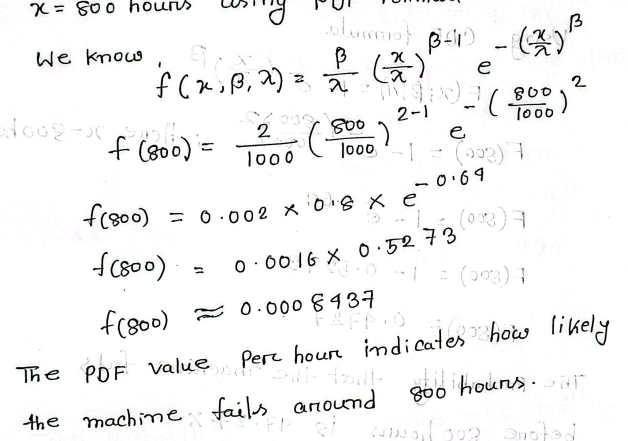 x = 800 hours using PDF
We know,
f(x, β, λ) = β/λ (x/λ)^(β-1) e^(-(x/λ)^β)
f(800) = 2/1000 (800/1000)^(2-1) e^(-(800/1000)^2)
f(800) = 0.002 × 0.8 × e^(-0.64)
f(800) = 0.0016 × 0.5273
f(800) ≈ 0.0008437
The PDF value per hour indicates how likely
the machine fails around 800 hours.